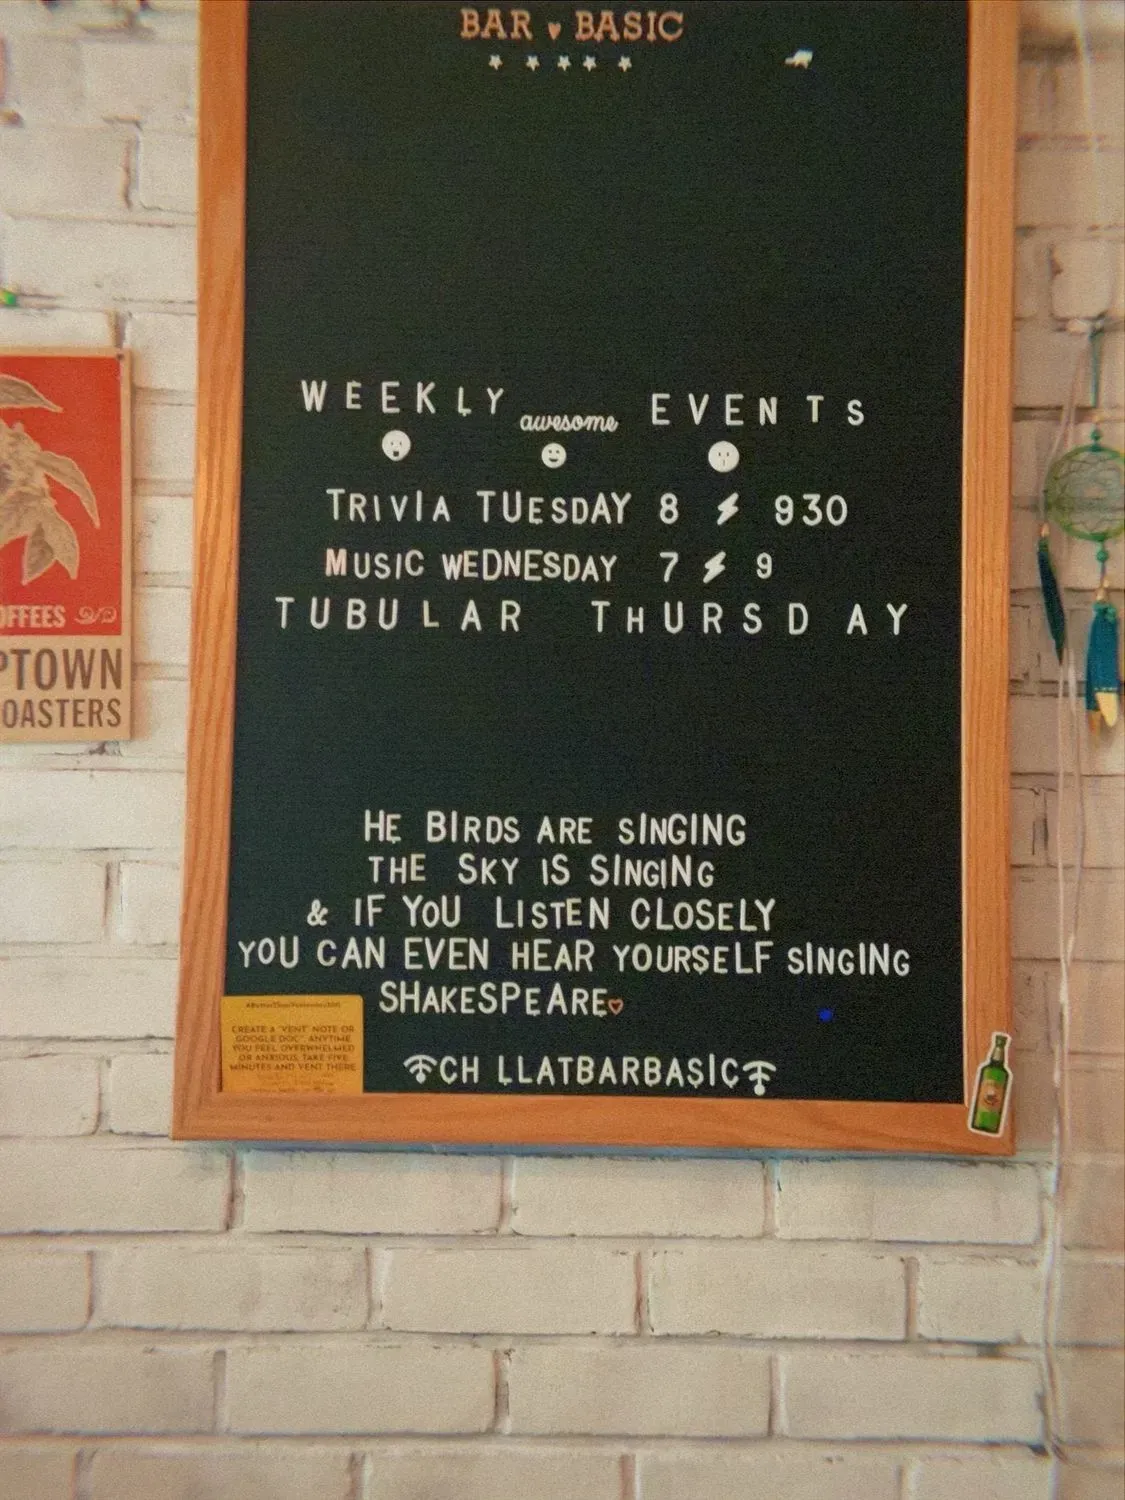 BAR ♥ BASIC
WEEKLY awesome EVENTS
TRIVIA TUESDAY 8 ⚡ 930
MUSIC WEDNESDAY 7 ⚡ 9
TUBULAR THURSDAY
HE BIRDS ARE SINGING
THE SKY IS SINGING
& IF YOU LISTEN CLOSELY
YOU CAN EVEN HEAR YOURSELF SINGING
SHAKESPEARE♡
CH LLATBARBASIC
CREATE A "VENT" NOTE OR
GOOGLE DOC". ANYTIME
YOU FEEL OVERWHELMED
OR ANXIOUS, TAKE FIVE
MINUTES AND VENT THERE.
OFFEES
PTOWN
OASTERS